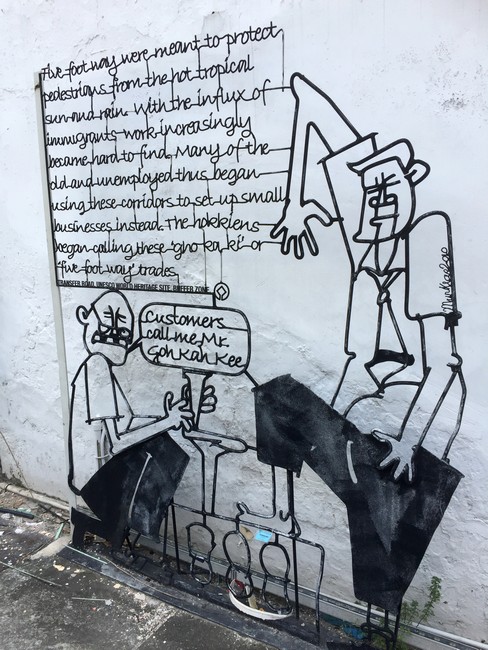 Five-foot way were meant to protect
pedestrians from the hot tropical
sun and rain. With the influx of
immigrants work increasingly
became hard to find. Many of the
old and unemployed thus began
using these corridors to set up small
businesses instead. The hokkiens
began calling these 'gho ka ki' or
'five foot way' trades.
TRANSFER ROAD, UNESCO WORLD HERITAGE SITE, BUFFER ZONE
Customers
call me, Mr.
Goh Kah Kee